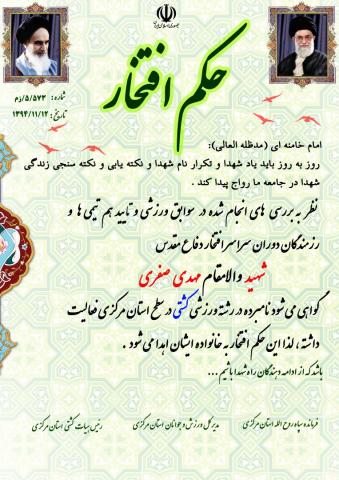 جمهوری اسلامی ایران
حکم افتخار
شماره: ۵/۵۷۳/دم
تاریخ: ۱۳۹۴/۱۱/۱۲
امام خامنه ای (مدظله العالی):
روز به روز باید یاد شهدا و تکرار نام شهدا و نکته یابی و نکته سنجی زندگی
شهدا در جامعه ما رواج پیدا کند .
نظر به بررسی های انجام شده در سوابق ورزشی و تایید هم تیمی ها و
رزمندگان دوران سراسر افتخار دفاع مقدس
شهید والامقام مهدی صفری
گواهی می شود نامبرده در رشته ورزشی کشتی در سطح استان مرکزی فعالیت
داشته ، لذا این حکم افتخار به خانواده ایشان اهدا می شود .
باشد که از ادامه دهندگان راه شهدا باشیم...
فرمانده سپاه روح الله استان مرکزی
مدیر کل ورزش و جوانان استان مرکزی
رئیس هیات کشتی استان مرکزی